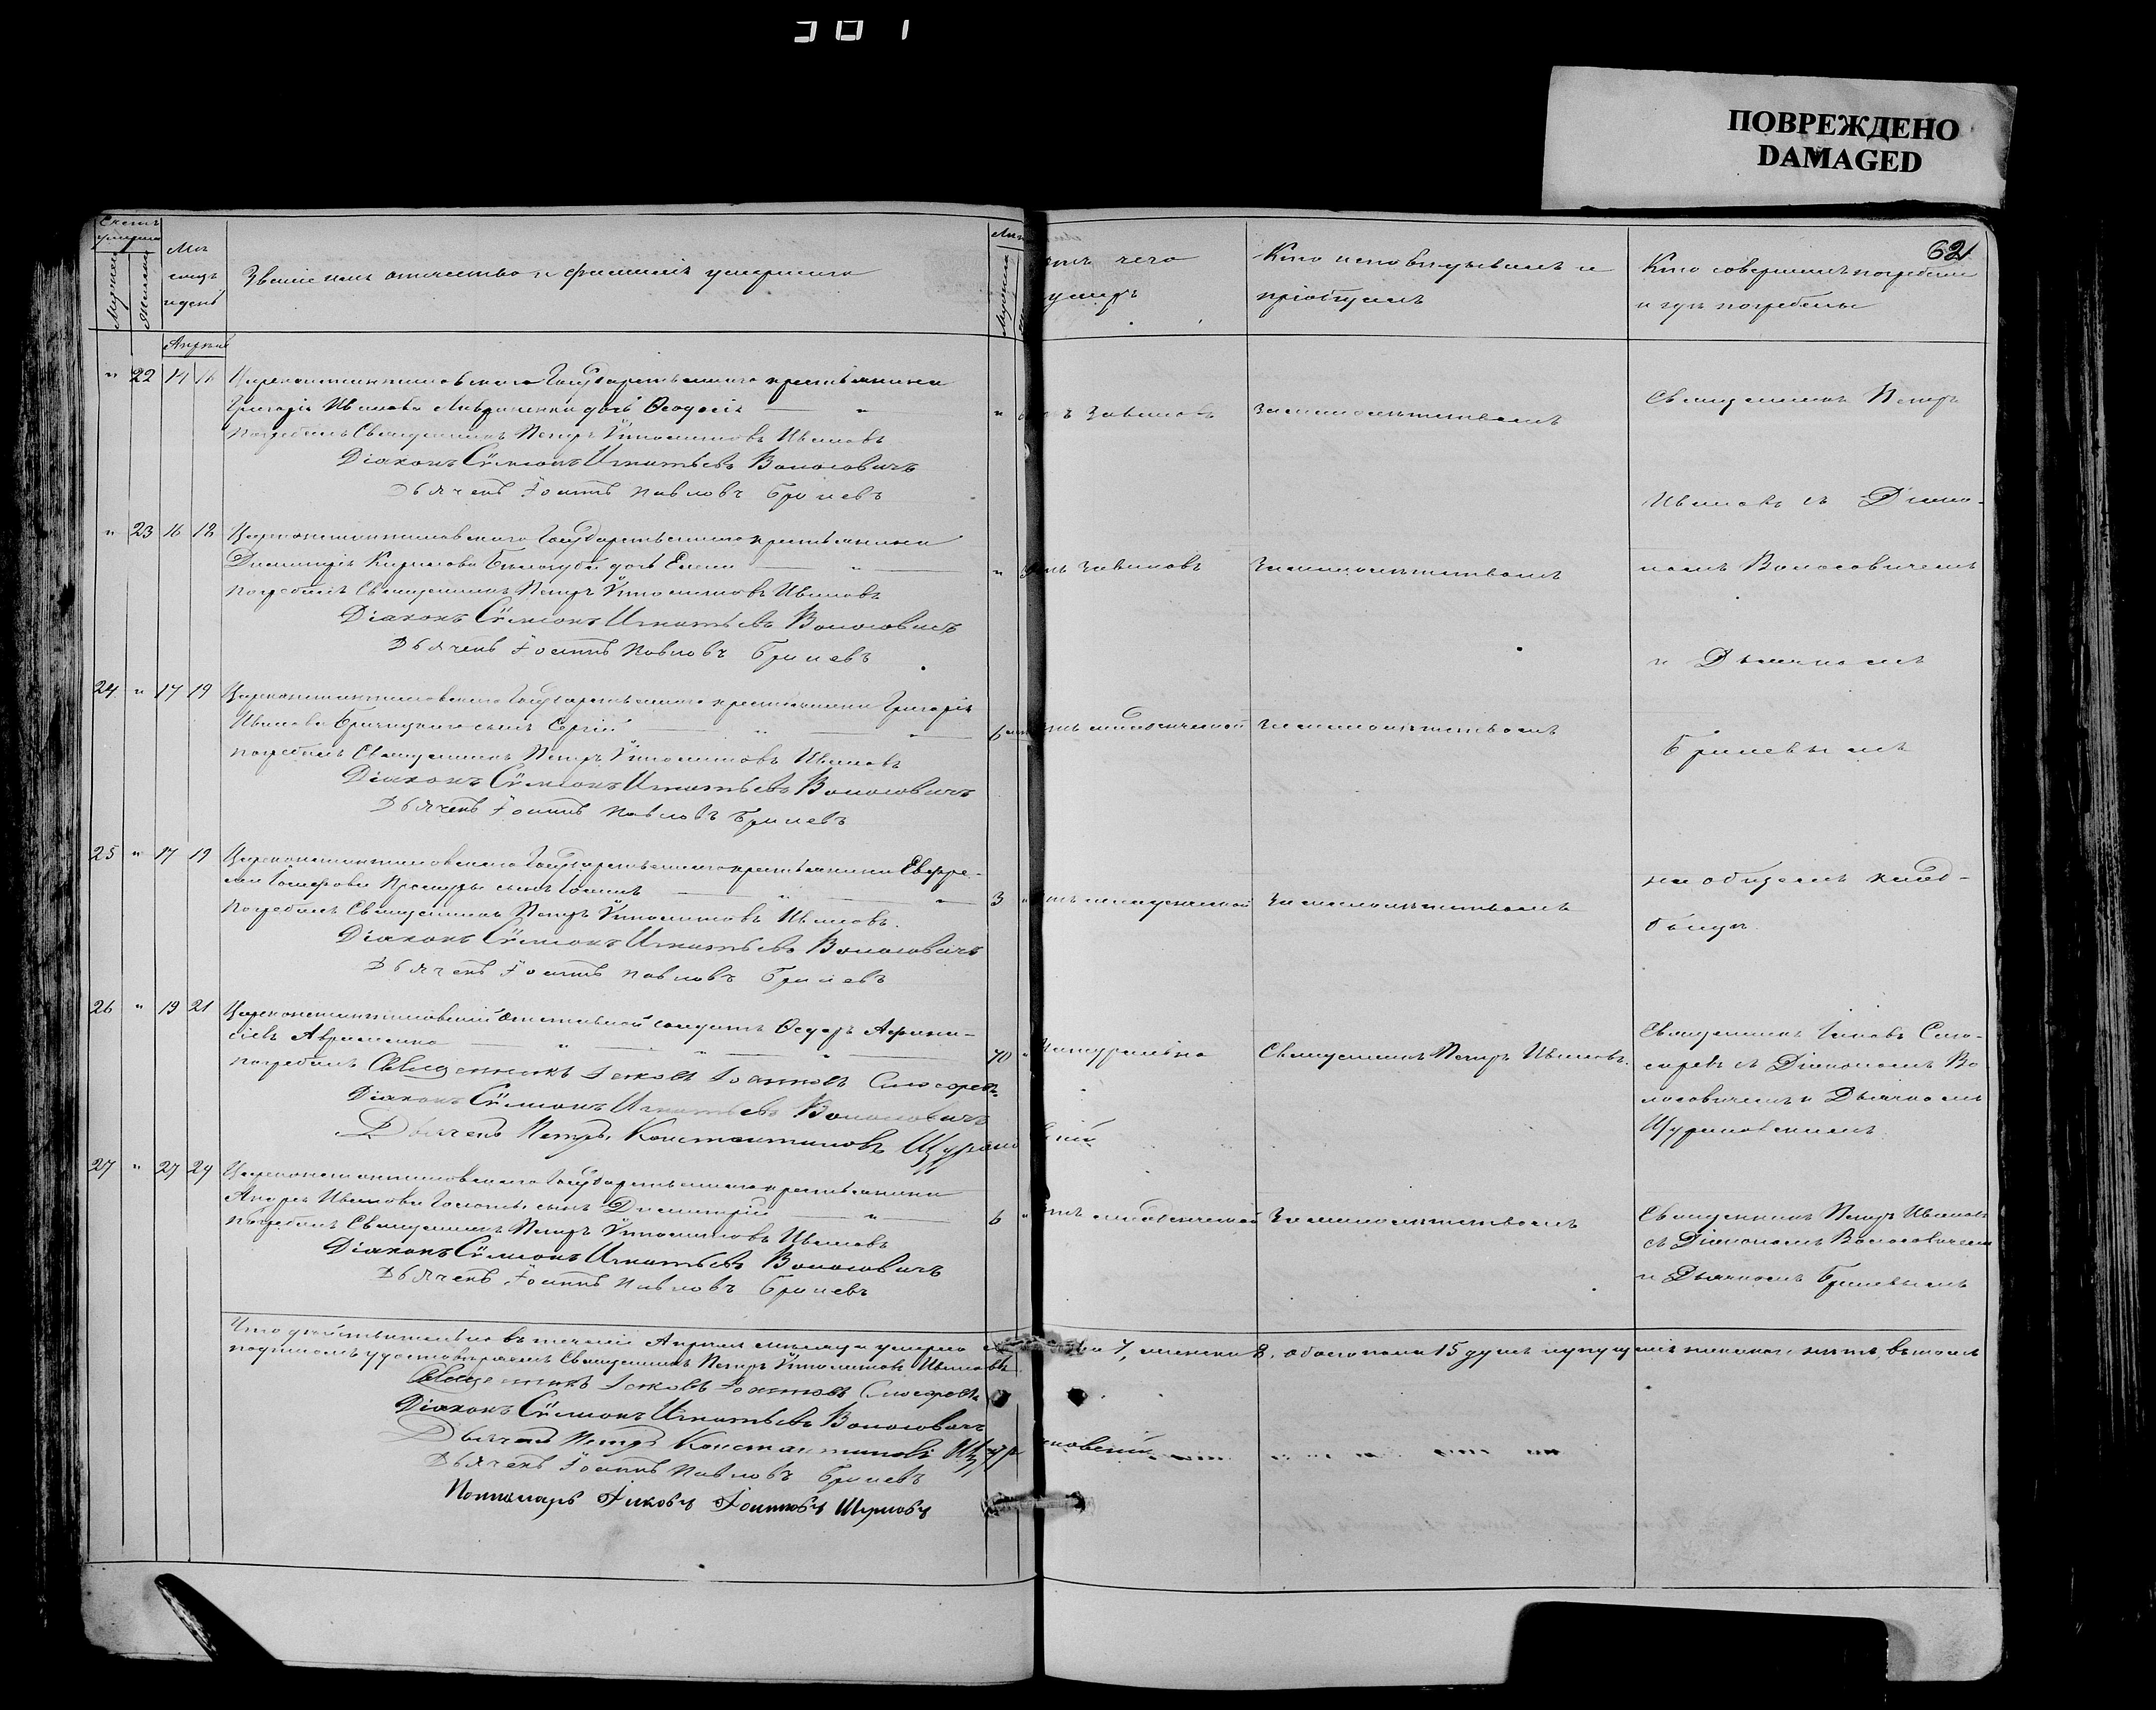 381
ПОВРЕЖДЕНО
DAMAGED
621
Счетъ умерш.
Мужеска
Женска
Мѣсяцъ и день
Званіе имя отечество и фамилія умершаго
Мужеска
отъ чего умеръ
Кто исповѣдывалъ и пріобщалъ
Кто совершалъ погребеніе и гдѣ погребены
Апрѣль
" 22 14 16 Цареконстантиновскаго Государственнаго крестьянина
Григорія Иванова дочь Ѳеодосія — "
Погребалъ Священникъ Петръ Ивановъ
Діаконъ Сѵмеонъ Игнатьевъ Волосовичъ
Дьячекъ Іоаннъ Павловъ Гриневъ
за малолѣтствомъ
Священникъ Петръ
Ивановъ съ Діако-
" 23 16 18 Цареконстантиновскаго Государственнаго крестьянина
Димитрія Кирилова дочь Елена — "
Погребалъ Священникъ Петръ Ивановъ
Діаконъ Сѵмеонъ Игнатьевъ Волосовичъ
Дьячекъ Іоаннъ Павловъ Гриневъ
за малолѣтствомъ
номъ Волосовичемъ
и Дьячкомъ
24 " 17 19 Цареконстантиновскаго Государственнаго крестьянина Григорія
Иванова сынъ Сергій — " — "
погребалъ Священникъ Петръ Ивановъ
Діаконъ Сѵмеонъ Игнатьевъ Волосовичъ
Дьячекъ Іоаннъ Павловъ Гриневъ
6
за малолѣтствомъ
Гриневымъ
25 " 17 19 Цареконстантиновскаго Государственнаго крестьянина Евфре-
ма Іосифова сынъ Іоаннъ — " — "
погребалъ Священникъ Петръ Ивановъ.
Діаконъ Сѵмеонъ Игнатьевъ Волосовичъ
Дьячекъ Іоаннъ Павловъ Гриневъ
3 "
за малолѣтствомъ
на общемъ клад-
бищѣ.
26 " 19 21 Цареконстантиновскій отставной солдатъ Ѳедоръ Афана-
сіевъ Авраменко — " — " — "
погребалъ Священникъ Іаковъ Іоанновъ Слюсаревъ
Діаконъ Сѵмеонъ Игнатьевъ Волосовичъ
Дьячекъ Петръ Константиновъ Щурановскій
70 "
натурально
Священникъ Петръ Ивановъ.
Священникъ Іаковъ Слю-
саревъ съ Діакономъ Во
лосовичемъ и Дьячкомъ
Щурановскимъ
27 " 27 29 Цареконстантиновскаго Государственнаго крестьянина
Андрея Иванова сынъ Димитрій — " —
погребалъ Священникъ Петръ Ивановъ
Діаконъ Сѵмеонъ Игнатьевъ Волосовичъ
Дьячекъ Іоаннъ Павловъ Гриневъ
6 "
за малолѣтствомъ
Священникъ Петръ Ивановъ
съ Діакономъ Волосовичемъ
и Дьячкомъ Гриневымъ
Что дѣйствительно въ теченіи Апрѣля мѣсяца умерло 7, женска 8, обоего пола 15 душъ и пропущенныхъ никого нѣтъ, въ томъ
подписомъ удостовѣряемъ Священникъ Петръ Ивановъ
Священникъ Іаковъ Іоанновъ Слюсаревъ
Діаконъ Сѵмеонъ Игнатьевъ Волосовичъ
Дьячекъ Петръ Константиновъ Щурановскій
Дьячекъ Іоаннъ Павловъ Гриневъ
Пономарь Іаковъ Іоанновъ